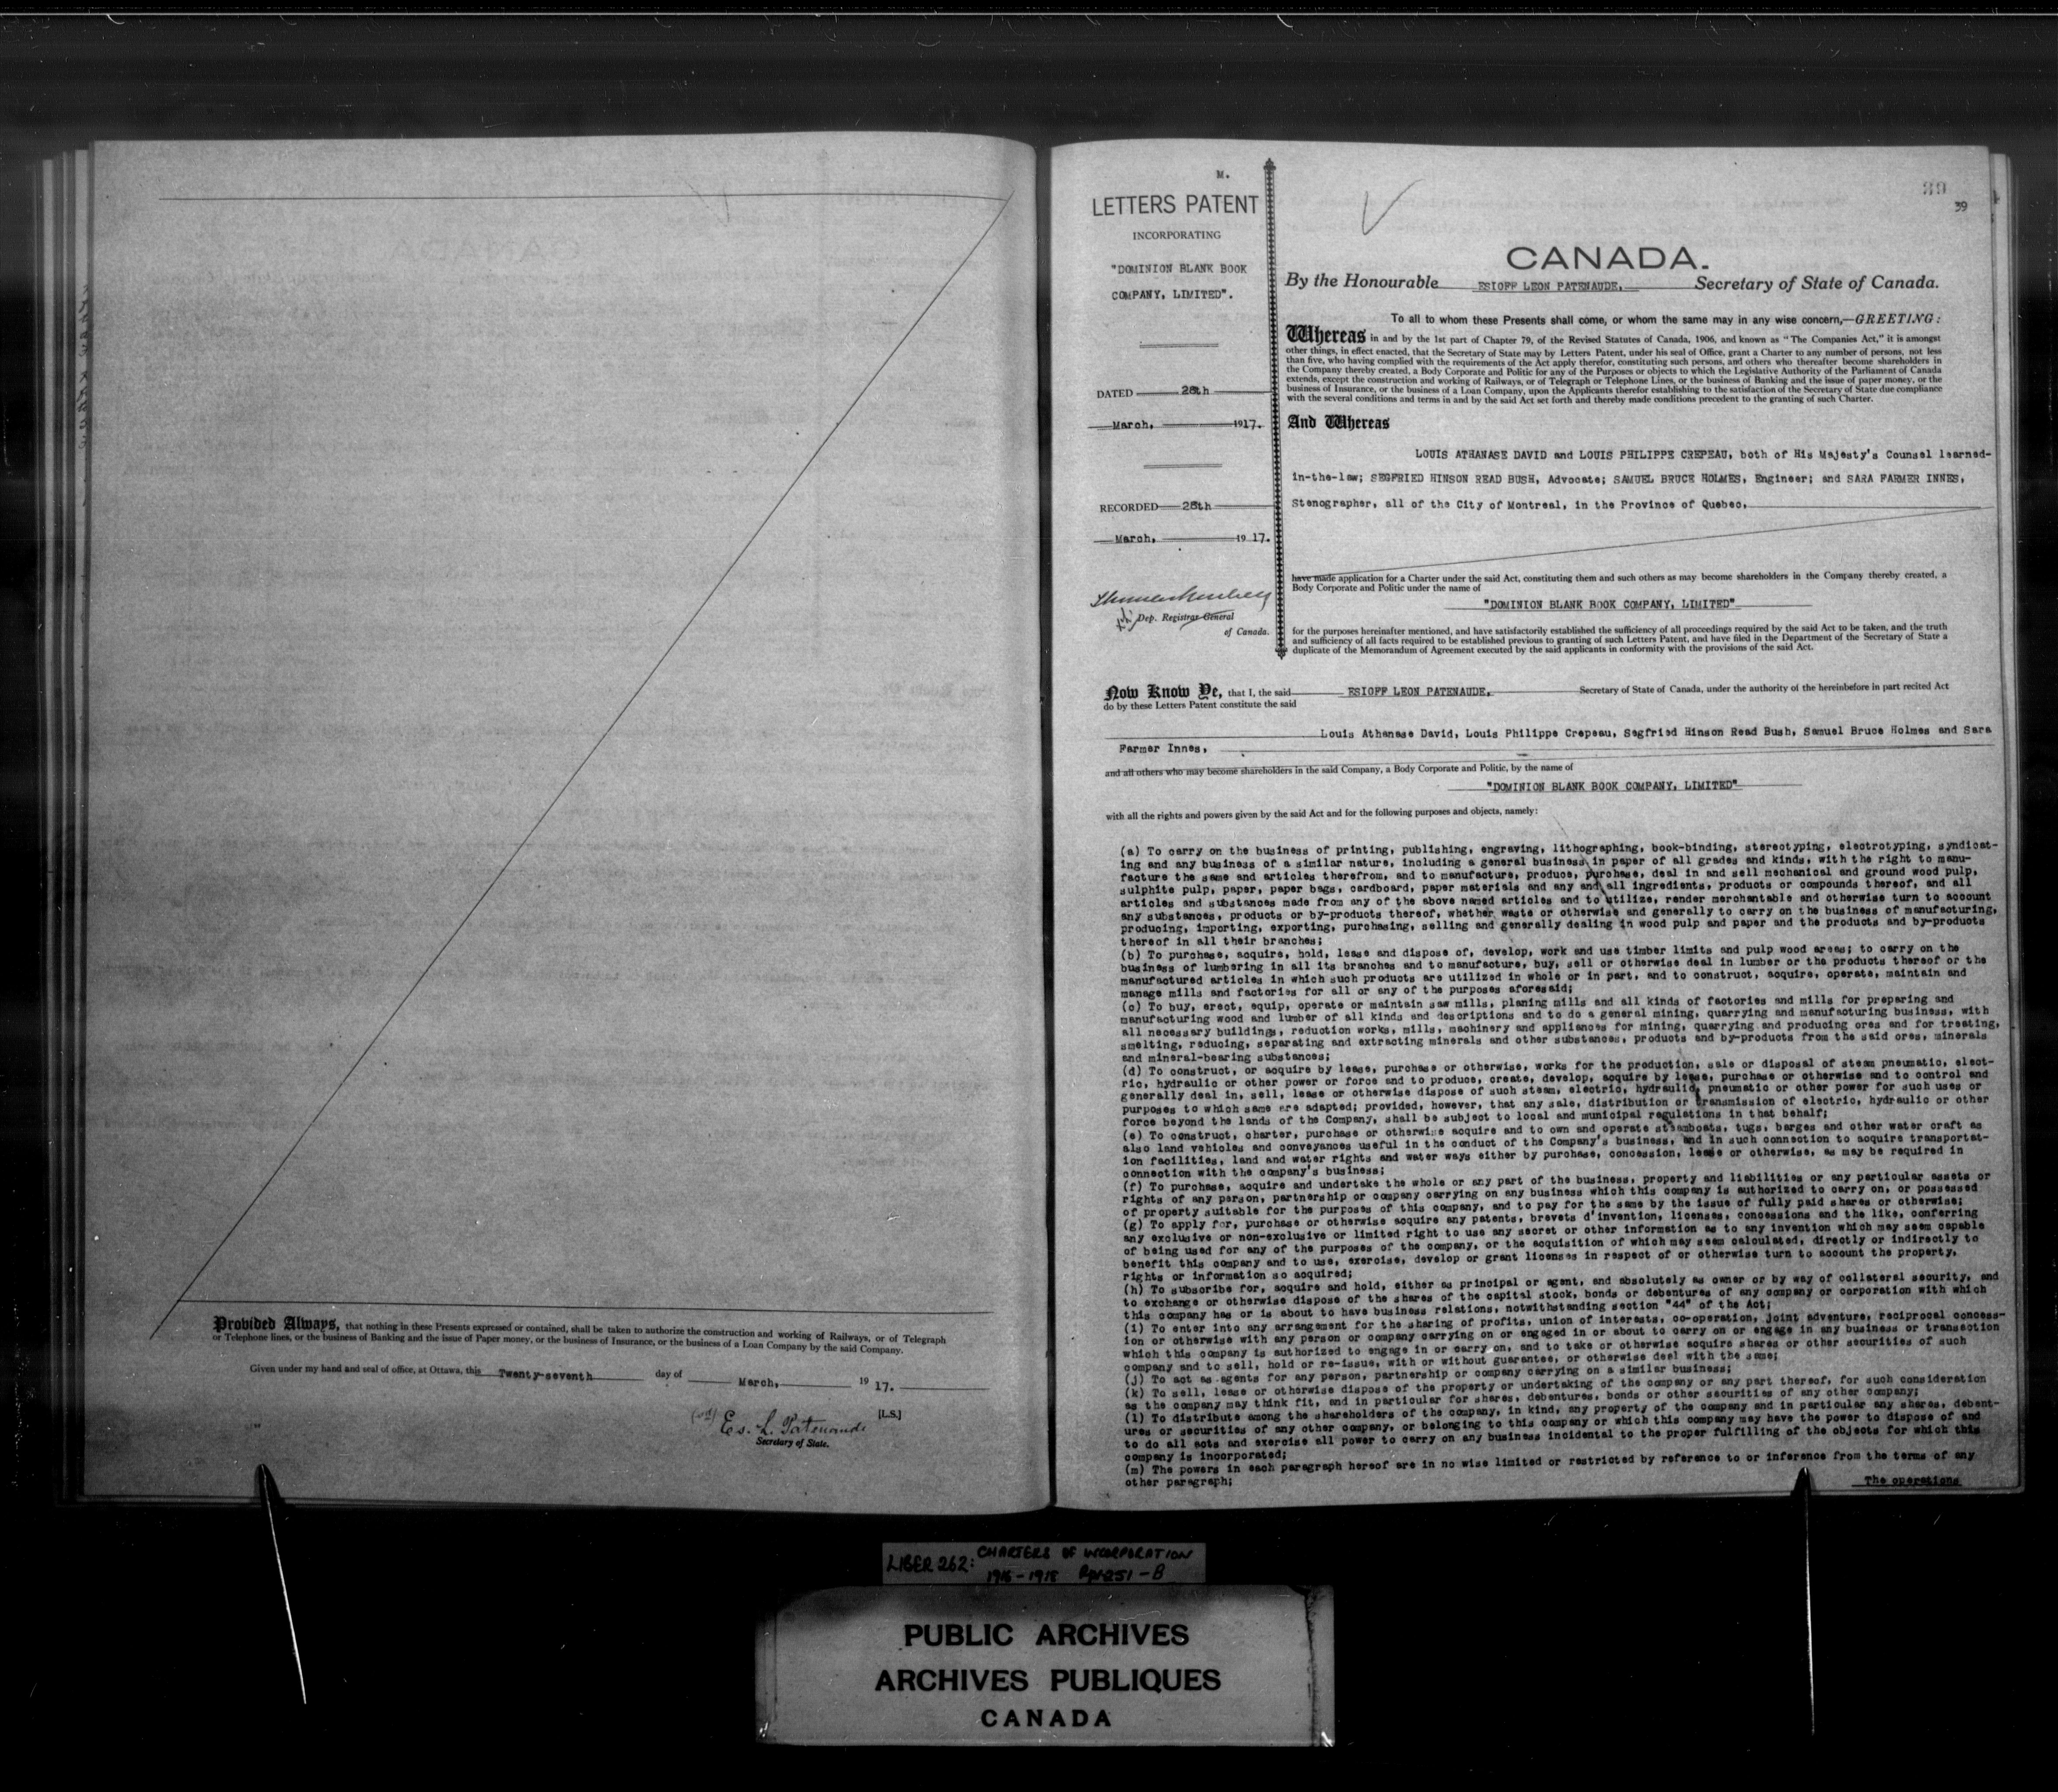 Provided Always, that nothing in these Presents expressed or contained, shall be taken to authorize the construction and working of Railways, or of Telegraph
or Telephone lines, or the business of Banking and the issue of Paper money, or the business of Insurance, or the business of a Loan Company by the said Company.
Given under my hand and seal of office, at Ottawa, this Twenty-seventh day of March, 19 17.
Es. L. Patenaude [L.S.]
Secretary of State.
M.
LETTERS PATENT
INCORPORATING
"DOMINION BLANK BOOK
COMPANY, LIMITED".
DATED 28th
March, 1917.
RECORDED 28th
March, 19 17.
Dep. Registrar General
of Canada.
39
39
CANADA.
By the Honourable ESIOFF LEON PATENAUDE, Secretary of State of Canada.
To all to whom these Presents shall come, or whom the same may in any wise concern,—GREETING:
Whereas in and by the 1st part of Chapter 79, of the Revised Statutes of Canada, 1906, and known as "The Companies Act," it is amongst
other things, in effect enacted, that the Secretary of State may by Letters Patent, under his seal of Office, grant a Charter to any number of persons, not less
than five, who having complied with the requirements of the Act apply therefor, constituting such persons, and others who thereafter become shareholders in
the Company thereby created, a Body Corporate and Politic for any of the Purposes or objects to which the Legislative Authority of the Parliament of Canada
extends, except the construction and working of Railways, or of Telegraph or Telephone Lines, or the business of Banking and the issue of paper money, or the
business of Insurance, or the business of a Loan Company, upon the Applicants therefor establishing to the satisfaction of the Secretary of State due compliance
with the several conditions and terms in and by the said Act set forth and thereby made conditions precedent to the granting of such Charter.
And Whereas
LOUIS ATHANASE DAVID and LOUIS PHILIPPE CREPEAU, both of His Majesty's Counsel learned-
in-the-law; SEGFRIED HINSON READ BUSH, Advocate; SAMUEL BRUCE HOLMES, Engineer; and SARA FARMER INNES,
Stenographer, all of the City of Montreal, in the Province of Quebec,
have made application for a Charter under the said Act, constituting them and such others as may become shareholders in the Company thereby created, a
Body Corporate and Politic under the name of
"DOMINION BLANK BOOK COMPANY, LIMITED"
for the purposes hereinafter mentioned, and have satisfactorily established the sufficiency of all proceedings required by the said Act to be taken, and the truth
and sufficiency of all facts required to be established previous to granting of such Letters Patent, and have filed in the Department of the Secretary of State a
duplicate of the Memorandum of Agreement executed by the said applicants in conformity with the provisions of the said Act.
Now Know Ye, that I, the said ESIOFF LEON PATENAUDE, Secretary of State of Canada, under the authority of the hereinbefore in part recited Act
do by these Letters Patent constitute the said
Louis Athanase David, Louis Philippe Crepeau, Segfried Hinson Read Bush, Samuel Bruce Holmes and Sara
Farmer Innes,
and all others who may become shareholders in the said Company, a Body Corporate and Politic, by the name of
"DOMINION BLANK BOOK COMPANY, LIMITED"
with all the rights and powers given by the said Act and for the following purposes and objects, namely:
(a) To carry on the business of printing, publishing, engraving, lithographing, book-binding, stereotyping, electrotyping, syndicat-
ing and any business of a similar nature, including a general business in paper of all grades and kinds, with the right to manu-
facture the same and articles therefrom, and to manufacture, produce, purchase, deal in and sell mechanical and ground wood pulp,
sulphite pulp, paper, paper bags, cardboard, paper materials and any and all ingredients, products or compounds thereof, and all
articles and substances made from any of the above named articles and to utilize, render merchantable and otherwise turn to account
any substances, products or by-products thereof, whether waste or otherwise and generally to carry on the business of manufacturing,
producing, importing, exporting, purchasing, selling and generally dealing in wood pulp and paper and the products and by-products
thereof in all their branches;
(b) To purchase, acquire, hold, lease and dispose of, develop, work and use timber limits and pulp wood areas; to carry on the
business of lumbering in all its branches and to manufacture, buy, sell or otherwise deal in lumber or the products thereof or the
manufactured articles in which such products are utilized in whole or in part, and to construct, acquire, operate, maintain and
manage mills and factories for all or any of the purposes aforesaid;
(c) To buy, erect, equip, operate or maintain saw mills, planing mills and all kinds of factories and mills for preparing and
manufacturing wood and lumber of all kinds and descriptions and to do a general mining, quarrying and manufacturing business, with
all necessary buildings, reduction works, mills, machinery and appliances for mining, quarrying and producing ores and for treating,
smelting, reducing, separating and extracting minerals and other substances, products and by-products from the said ores, minerals
and mineral-bearing substances;
(d) To construct, or acquire by lease, purchase or otherwise, works for the production, sale or disposal of steam pneumatic, elect-
ric, hydraulic or other power or force and to produce, create, develop, acquire by lease, purchase or otherwise and to control and
generally deal in, sell, lease or otherwise dispose of such steam, electric, hydraulic, pneumatic or other power for such uses or
purposes to which same are adapted; provided, however, that any sale, distribution or transmission of electric, hydraulic or other
force beyond the lands of the Company, shall be subject to local and municipal regulations in that behalf;
(e) To construct, charter, purchase or otherwise acquire and to own and operate steamboats, tugs, barges and other water craft as
also land vehicles and conveyances useful in the conduct of the Company's business, and in such connection to acquire transportat-
ion facilities, land and water rights and water ways either by purchase, concession, lease or otherwise, as may be required in
connection with the company's business;
(f) To purchase, acquire and undertake the whole or any part of the business, property and liabilities or any particular assets or
rights of any person, partnership or company carrying on any business which this company is authorized to carry on, or possessed
of property suitable for the purposes of this company, and to pay for the same by the issue of fully paid shares or otherwise;
(g) To apply for, purchase or otherwise acquire any patents, brevets d'invention, licenses, concessions and the like, conferring
any exclusive or non-exclusive or limited right to use any secret or other information as to any invention which may seem capable
of being used for any of the purposes of the company, or the acquisition of which may seem calculated, directly or indirectly to
benefit this company and to use, exercise, develop or grant licenses in respect of or otherwise turn to account the property,
rights or information so acquired;
(h) To subscribe for, acquire and hold, either as principal or agent, and absolutely as owner or by way of collateral security, and
to exchange or otherwise dispose of the shares of the capital stock, bonds or debentures of any company or corporation with which
this company has or is about to have business relations, notwithstanding section "44" of the Act;
(i) To enter into any arrangement for the sharing of profits, union of interests, co-operation, joint adventure, reciprocal concess-
ion or otherwise with any person or company carrying on or engaged in or about to carry on or engage in any business or transaction
which this company is authorized to engage in or carry on, and to take or otherwise acquire shares or other securities of such
company and to sell, hold or re-issue, with or without guarantee, or otherwise deal with the same;
(j) To act as agents for any person, partnership or company carrying on a similar business;
(k) To sell, lease or otherwise dispose of the property or undertaking of the company or any part thereof, for such consideration
as the company may think fit, and in particular for shares, debentures, bonds or other securities of any other company;
(l) To distribute among the shareholders of the company, in kind, any property of the company and in particular any shares, debent-
ures or securities of any other company, or belonging to this company or which this company may have the power to dispose of and
to do all acts and exercise all power to carry on any business incidental to the proper fulfilling of the objects for which this
company is incorporated;
(m) The powers in each paragraph hereof are in no wise limited or restricted by reference to or inference from the terms of any
other paragraph;
The operations
LIBER 262: CHARTERS OF INCORPORATION
1916-1918
PUBLIC ARCHIVES
ARCHIVES PUBLIQUES
CANADA